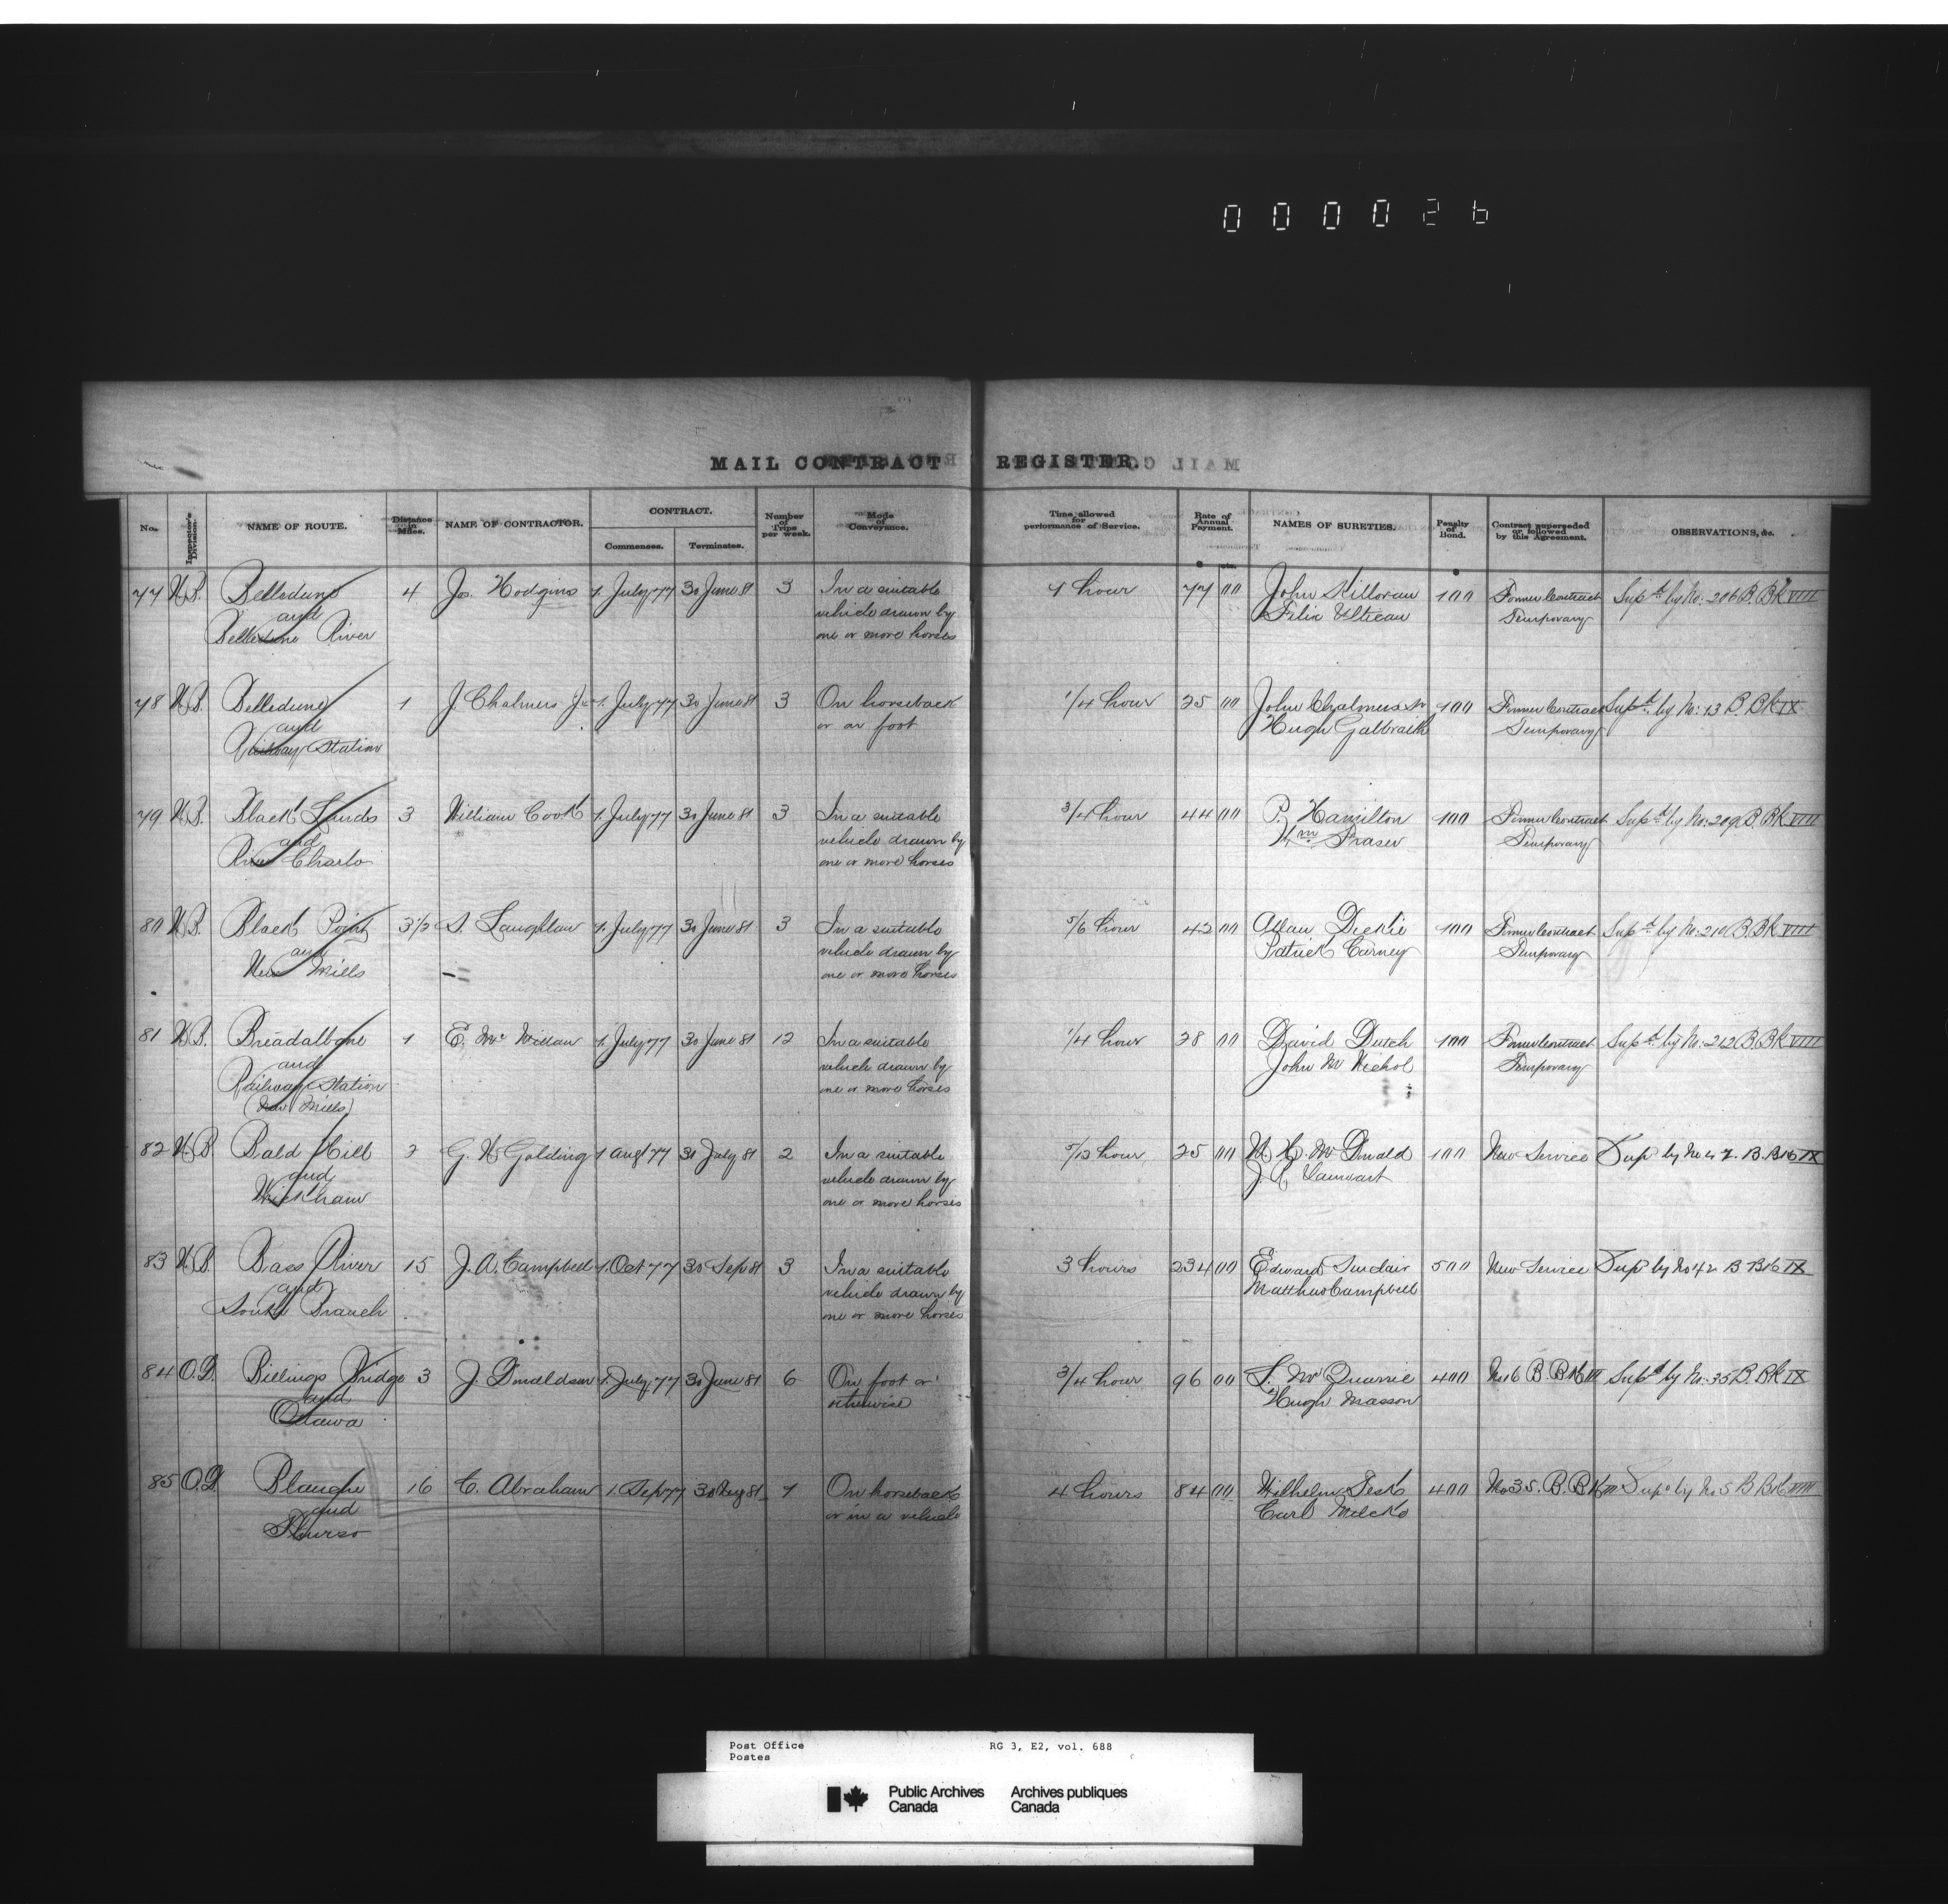 000026
MAIL CONTRACT REGISTER.
No. Inspector's Division. NAME OF ROUTE. Distance in Miles. NAME OF CONTRACTOR. CONTRACT. Commences. Terminates. Number of Trips per week. Mode of Conveyance. Time allowed for performance of Service. Rate of Annual Payment. NAMES OF SURETIES. Penalty of Bond. Contract superseded or followed by this Agreement. OBSERVATIONS, &c.
77 N.B. Belledune 4 Jos. Hodgins 1. July 77 30 June 81 3 In a suitable 1 hour 77 00 John Killoran 100 Former Contract Supd. by No: 206 B. Bk VIII
and vehicle drawn by Felix Temporary
Belledune River one or more horses
78 N.B. Belledune 1 J Chalmers Jr 1. July 77 30 June 81 3 On horseback 1/4 hour 25 00 John Chalmers Sr 100 Former Contract Supd. by No: 13 B. Bk IX
and or on foot Hugh Galbraith Temporary
Railway Station
79 N.B. Black Lands 3 William Cook 1. July 77 30 June 81 3 In a suitable 3/4 hour 44 00 P. Hamilton 100 Former Contract Supd by No: 209 B. Bk VIII
and vehicle drawn by Wm. Fraser Temporary
River Charlo one or more horses
80 N.B. Black Point 3 1/2 S. Laughlan 1. July 77 30 June 81 3 In a suitable 5/6 hour 42 00 Allan Dickie 100 Former Contract Supd by No: 210 B. Bk VIII
and vehicle drawn by Patrick Carney Temporary
New Mills one or more horses
81 N.B. Breadalbane 1 E. Mc Millan 1. July 77 30 June 81 12 In a suitable 1/4 hour 28 00 David Dutch 100 Former Contract Supd. by No. 212 B. Bk VIII
and vehicle drawn by John Mc Nichol Temporary
Railway Station one or more horses
(New Mills)
82 N.B. Bald Hill 2 G. W. Golding 1 Augt 77 31 July 81 2 In a suitable 5/12 hour 25 00 W. H. Mc Donald 100 New Service Supd by No 47 B. Bk IX
and vehicle drawn by J. R. Vanwart
Wickham one or more horses
83 N.B. Bass River 15 J. A. Campbell 1. Oct 77 30 Sep 81 3 In a suitable 3 hours 234 00 Edward Sinclair 500 New Service Supd by No 42 B Bk IX
and vehicle drawn by Matthew Campbell
South Branch one or more horses
84 O.D. Billings Bridge 3 J. Donaldson 1. July 77 30 June 81 6 On foot or 3/4 hour 96 00 L. Mc Quarrie 400 No 6 B. Bk III Supd by No: 35 B. Bk IX
and otherwise Hugh Masson
Ottawa
85 O.D. Blanche 16 C. Abraham 1. Sep 77 31 Aug 81 1 On horseback 4 hours 84 00 Wilhelm 400 No 35. B. Bk III Supd by No 5 B Bk VIII
and or in a vehicle Carl
Thurso
Post Office RG 3, E2, vol. 688
Postes
Public Archives Archives publiques
Canada Canada